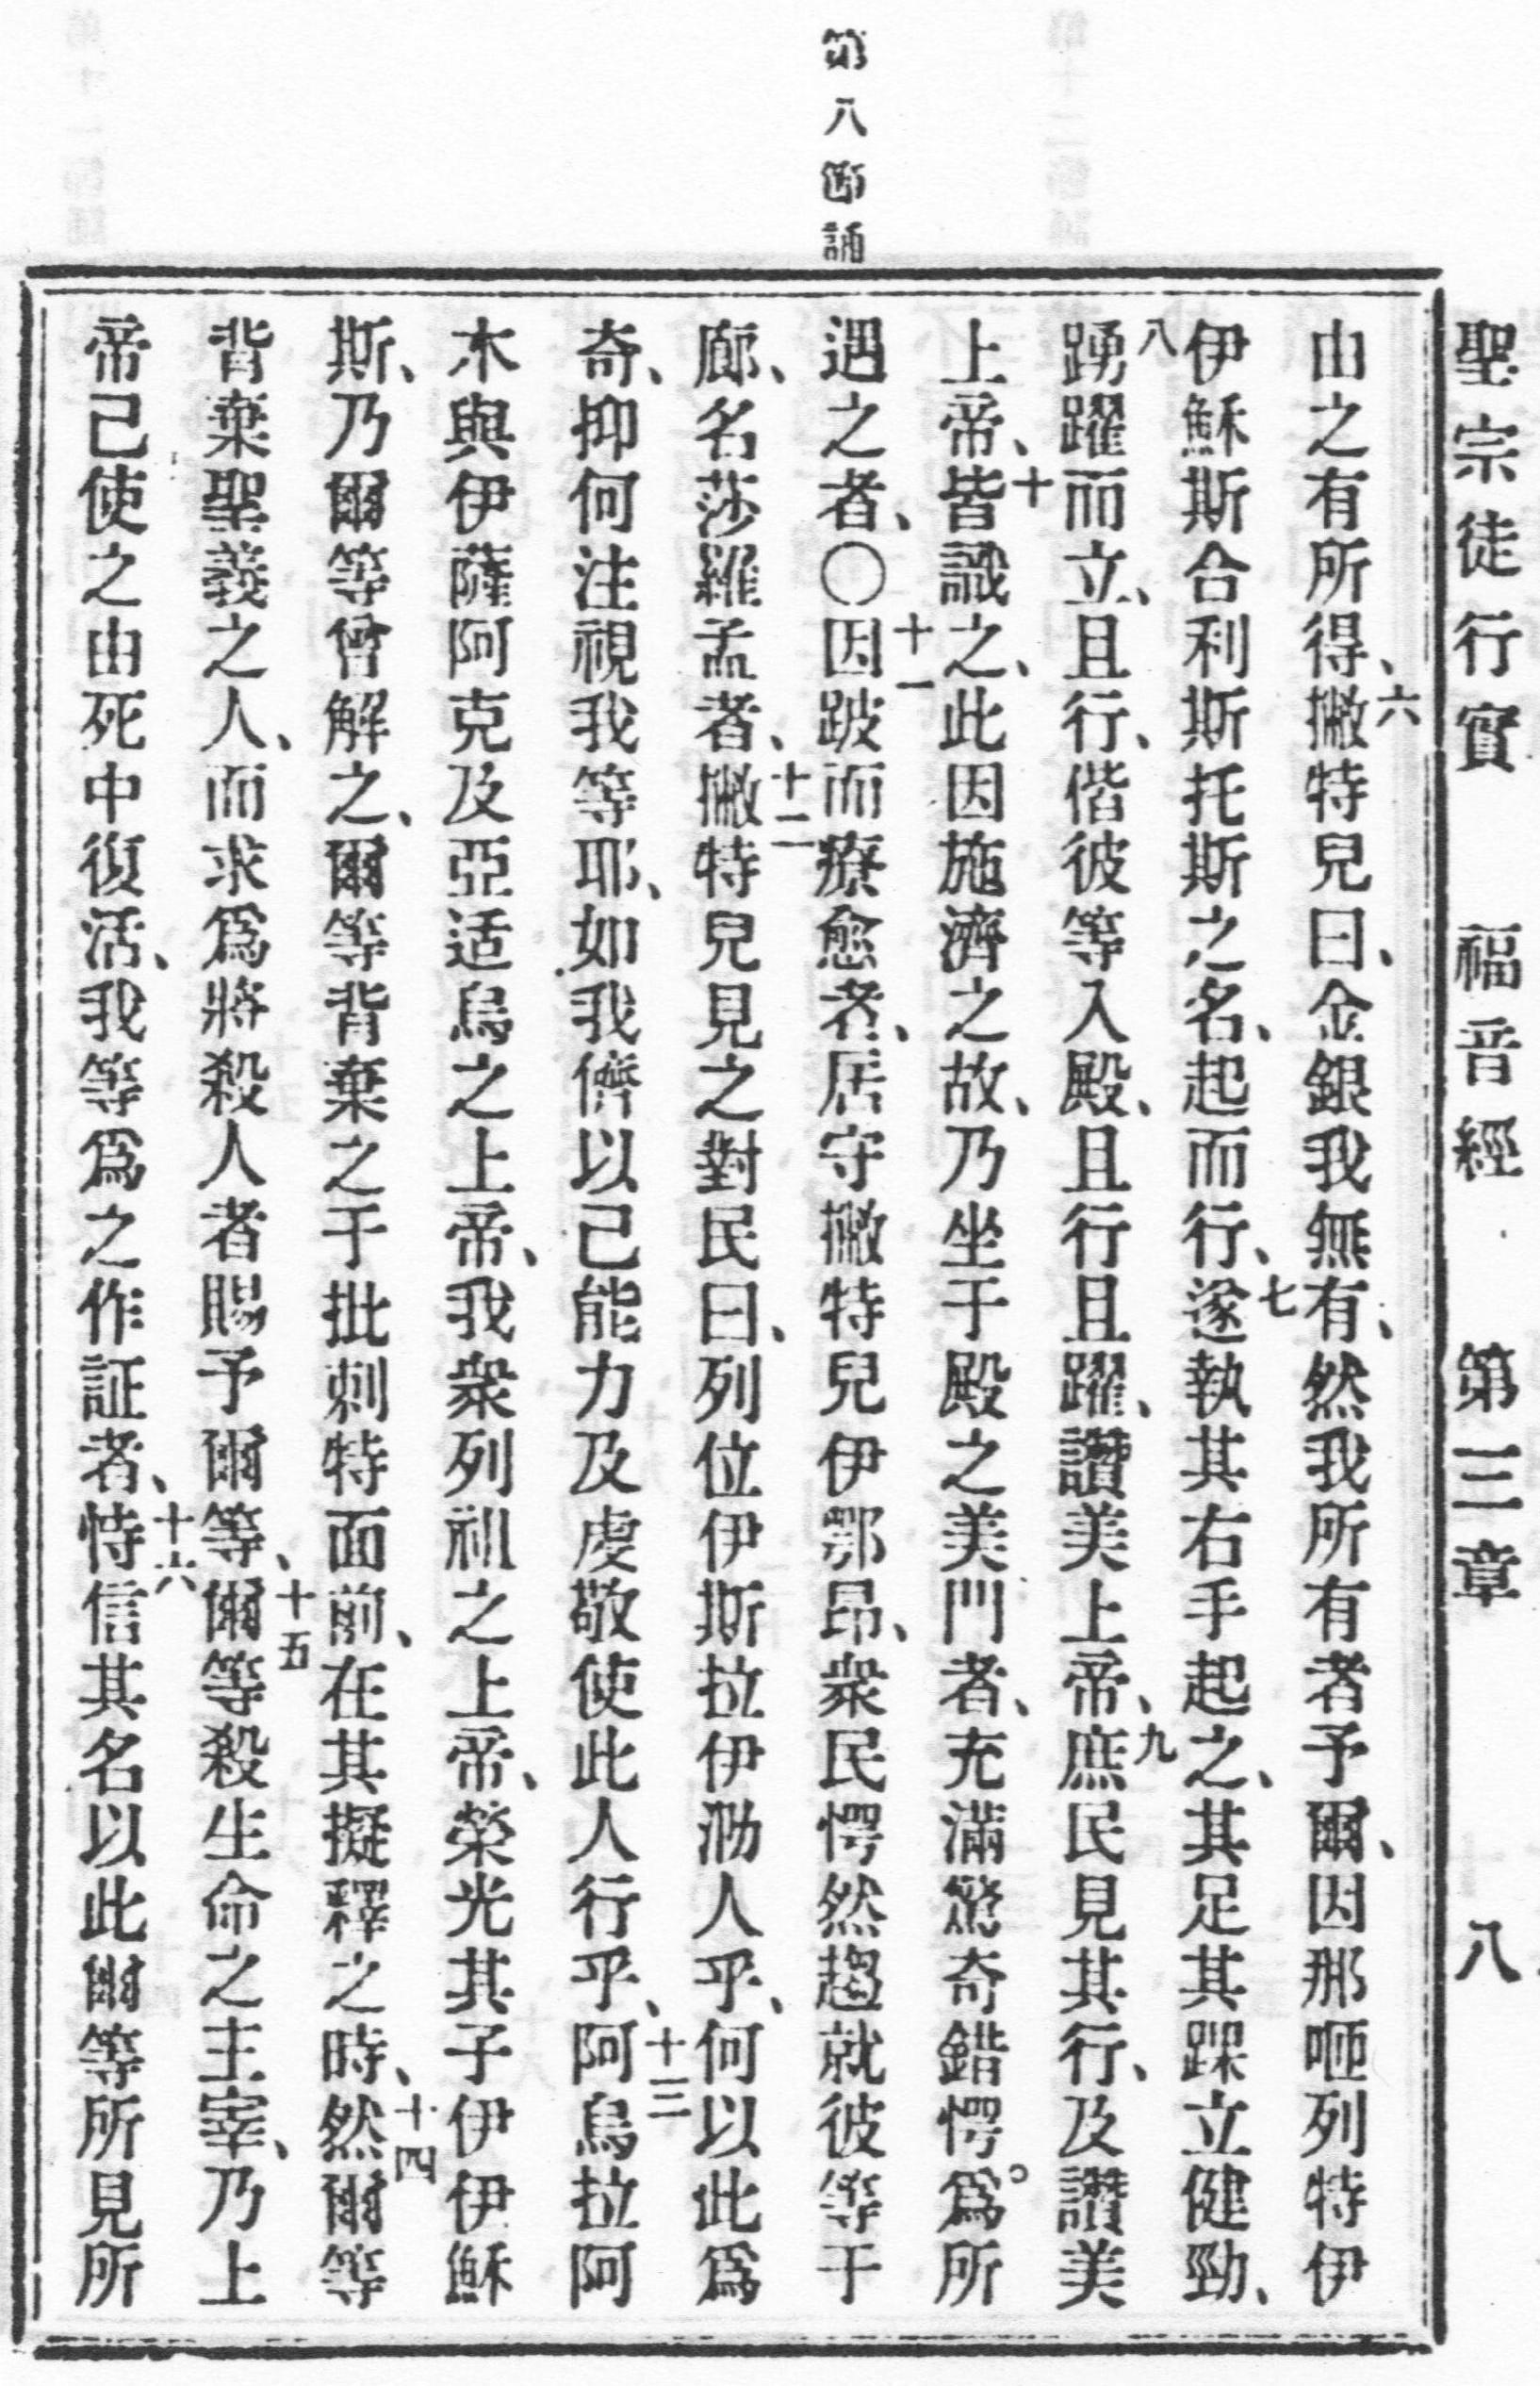 聖宗徒行實　福音經　第三章　八
第八節誦
由之有所得、六撇特兒曰、金銀我無有、然我所有者予爾、因那咂列特伊
伊穌斯合利斯托斯之名、起而行、七遂執其右手起之、其足其踝立健勁、
八踴躍而立、且行、偕彼等入殿、且行且躍、讚美上帝、九庶民見其行、及讚美
上帝、十皆識之、此因施濟之故、乃坐于殿之美門者、充滿驚奇錯愕。爲所
遇之者、〇十一因跛而療愈者、居守撇特兒伊鄂昂、衆民愕然趨就彼等于
廊、名莎羅孟者、十二撇特兒見之對民曰、列位伊斯拉伊泐人乎、何以此爲
奇、抑何注視我等耶、如我儕以己能力及虔敬使此人行乎、十三阿烏拉阿
木與伊薩阿克及亞适烏之上帝、我衆列祖之上帝、榮光其子伊伊穌
斯、乃爾等曾解之、爾等背棄之于批剌特面前、在其擬釋之時、十四然爾等
背棄聖義之人、而求爲將殺人者賜予爾等、十五爾等殺生命之主宰、乃上
帝已使之由死中復活、我等爲之作証者、十六恃信其名以此爾等所見所